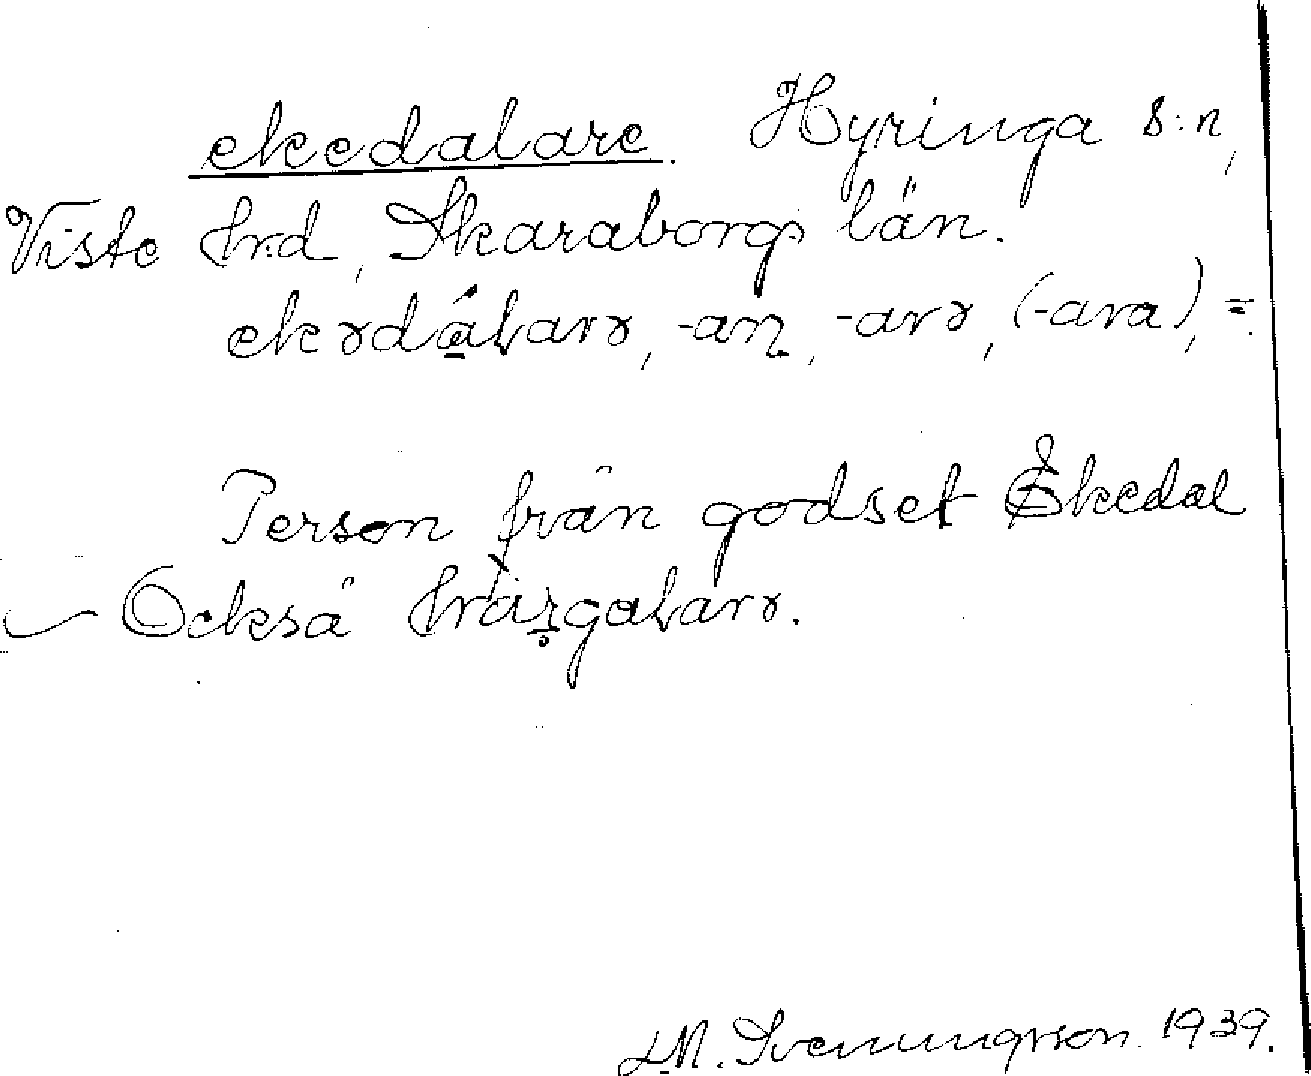 ekedalare. Hyringa s:n,
Viste hrd, Skaraborgs län.
ekədálarə, -an, -arə, (-ara), =.
Person från godset Ekedal
Också
L.M. Svenungsson. 1939.